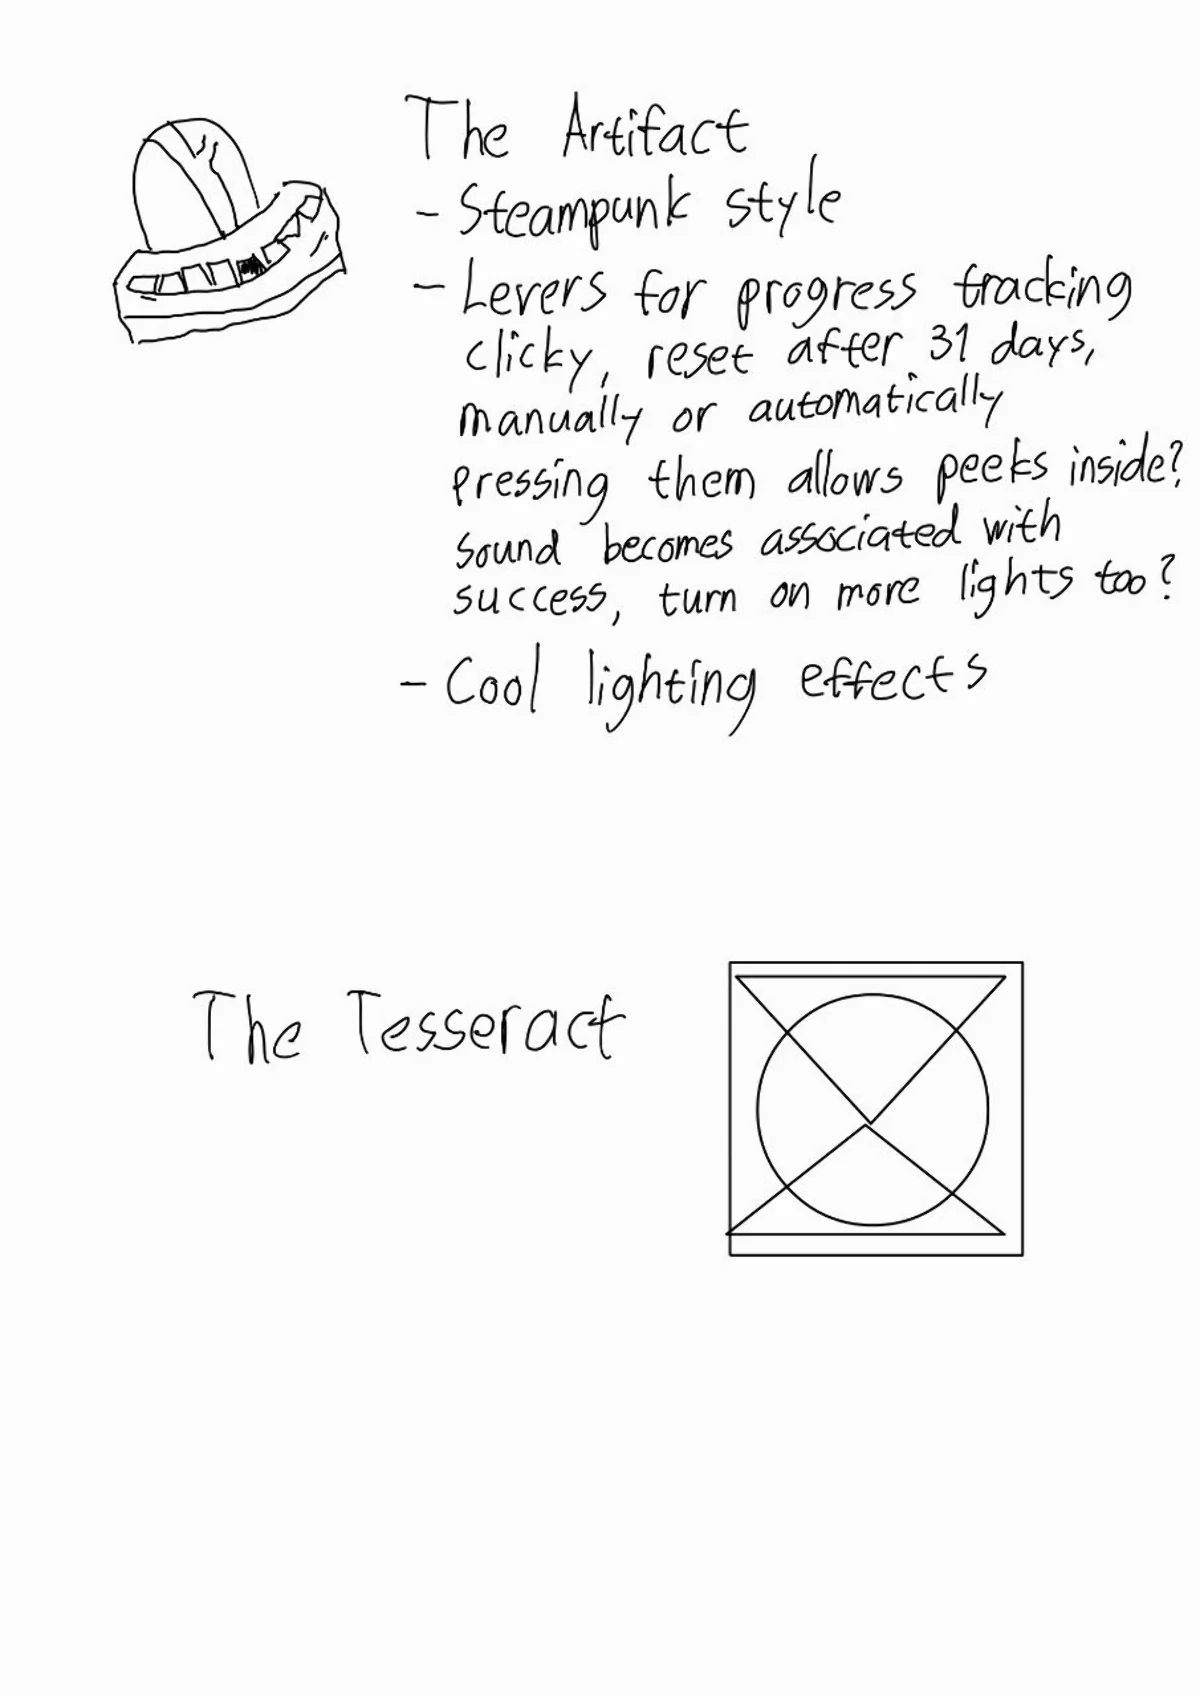 The Artifact
- Steampunk style
- Levers for progress tracking
clicky, reset after 31 days,
manually or automatically
pressing them allows peeks inside?
sound becomes associated with
success, turn on more lights too?
- Cool lighting effects
The Tesseract